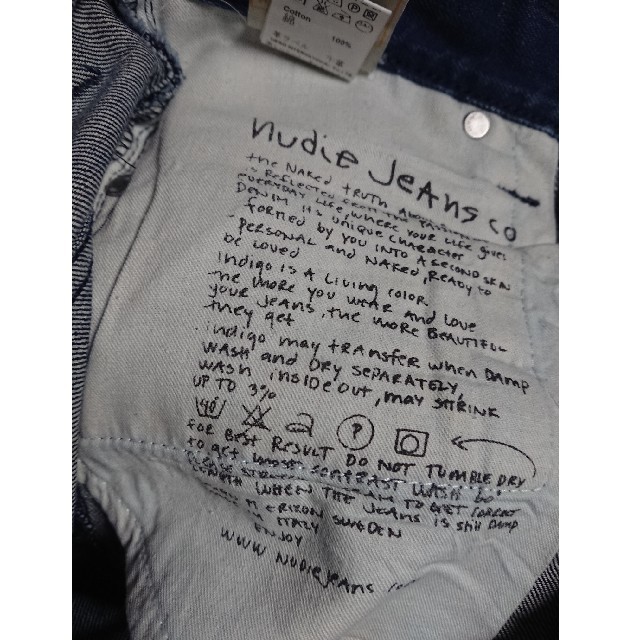 Cotton 100%
綿
nudie Jeans co
the NAKED tRUTH About
is Reflected
EVERYDAY LIFE, WHERE YOUR LIFE GIVES
DENIM ITS UNIQUE CHARACTER
FORMED by YOU INTO A SECOND SKIN
PERSONAL and NAKED, READY to
be LOVED
INDIGO IS A LIVING COLOR.
the MORE YOU WEAR AND LOVE
YOUR JEANS, THE MORE BEAUTIFUL
they get
indigo may tRANSFER WHEN DAMP
WASH and DRY SEPARATELY,
WASH INSIDE OUT, MAY SHRINK
UP TO 3%
40
P
FOR BEST RESULT DO NOT TUMBLE DRY
to get MORE CONTRAST WASH 60°
PLEASE STRETCH TO GET CORRECT
LENGTH WHEN THE JEANS IS STILL DAMP
M ERIXON SWEDEN
ITALY
ENJOY
WWW NUDIEJEANS